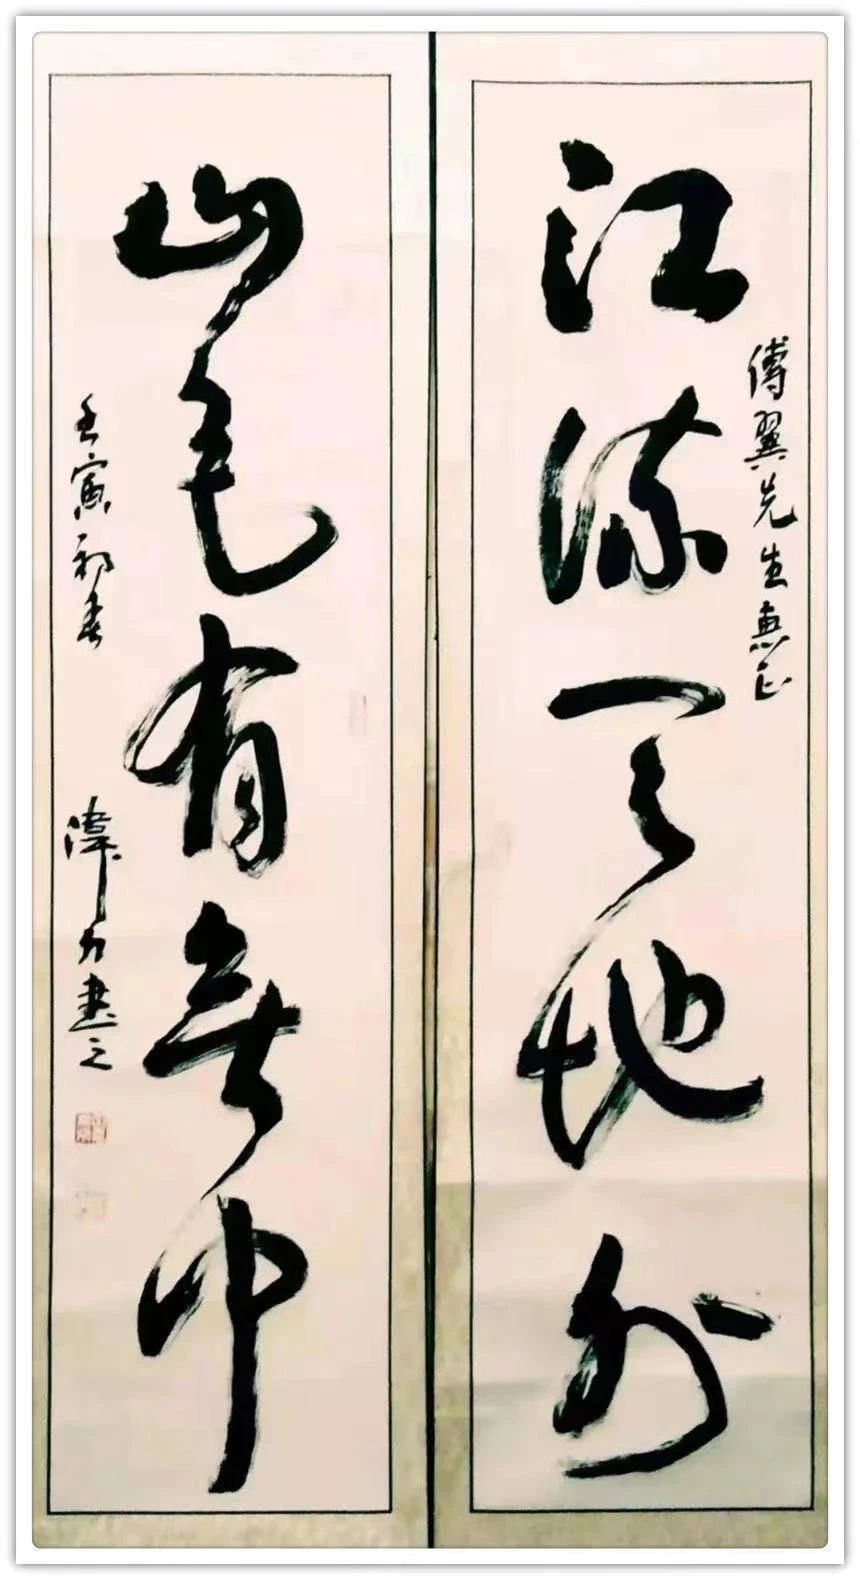 傅翼先生惠正
江流天地外
山色有無中
壬寅初春
偉力書之